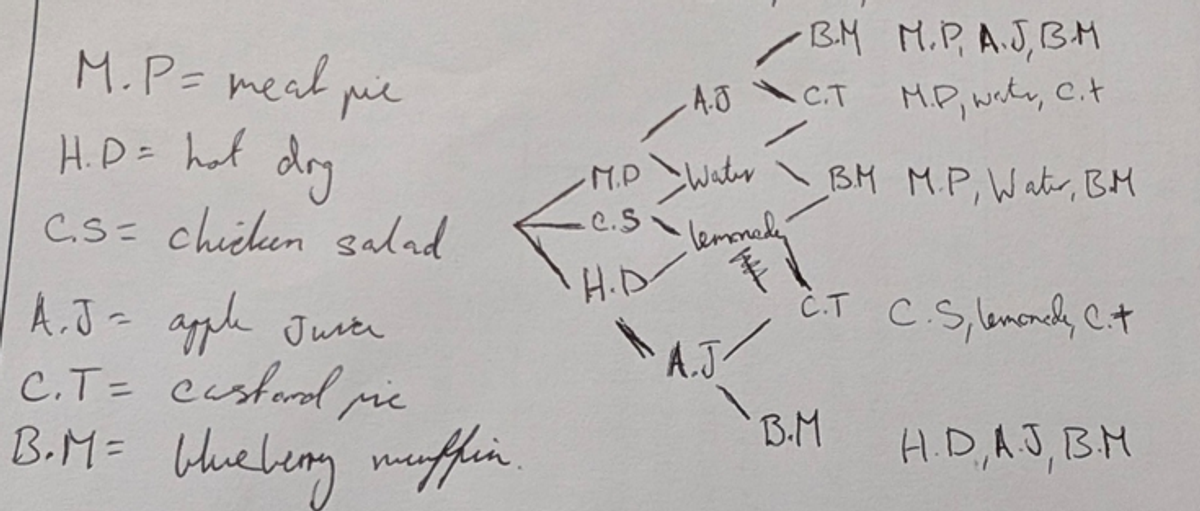 M.P = meat pie
H.D = hot dog
C.S = chicken salad
A.J = apple Juice
C.T = custard pie
B.M = blueberry muffin.
B.M M.P, A.J, B.M
A.J C.T M.P, water, C.t
M.P Water B.M M.P, Water, B.M
C.S lemonade
H.D C.T C.S, lemonade, C.t
A.J
B.M H.D, A.J, B.M